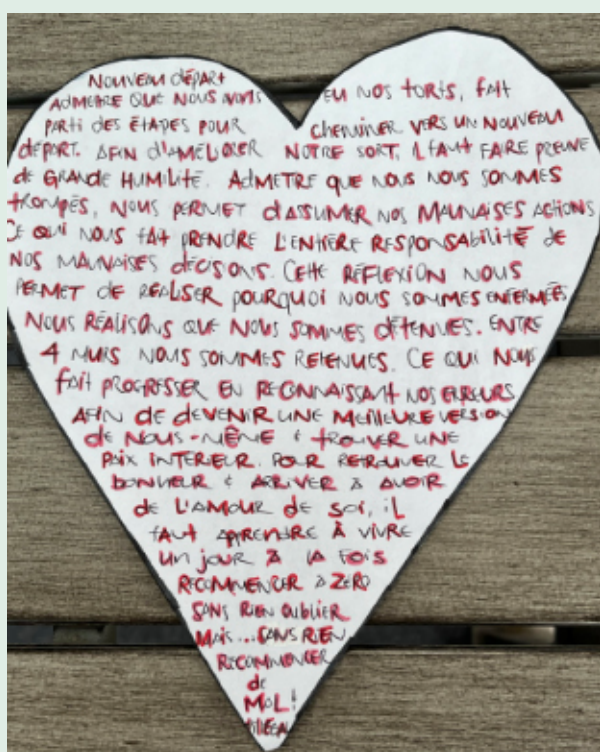 NOUVEAU DÉPART
ADMETRE QUE NOUS AVONS EU NOS TORTS, FAIT
PARTI DES ÉTAPES POUR CHEMINER VERS UN NOUVEAU
DÉPART. AFIN D'AMÉLIORER NOTRE SORT, IL FAUT FAIRE PREUVE
de GRANDE HUMILITÉ. ADMETRE QUE NOUS NOUS SOMMES
TROMPÉS, NOUS PERMET D'ASSUMER NOS MAUVAISES ACTIONS
CE QUI NOUS FAIT PRENDRE L'ENTIÈRE RESPONSABILITÉ de
NOS MAUVAISES DÉCISONS. CETTE RÉFLEXION NOUS
PERMET de RÉALISER POURQUOI NOUS SOMMES ENFERMÉES
NOUS RÉALISONS QUE NOUS SOMMES DÉTENUES. ENTRE
4 MURS NOUS SOMMES RETENUES. CE QUI NOUS
FAIT PROGRESSER EN RECONNAISSANT NOS ERREURS
AFIN DE DEVENIR UNE MEILLEURE VERSION
de NOUS-MÊME & TROUVER UNE
PAIX INTÉRIEUR. POUR RETROUVER LE
BONHEUR & ARRIVER À AVOIR
de L'AMOUR de SOI, IL
FAUT APPRENDRE À VIVRE
UN JOUR À LA FOIS
RECOMMENCER À ZÉRO
SANS RIEN OUBLIER
MAIS... SANS RIEN
RECOMMENCER
de
MAL!